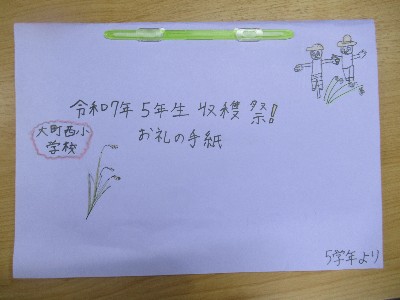 令和7年5年生収穫祭!
お礼の手紙
大町西小
学校
5学年より